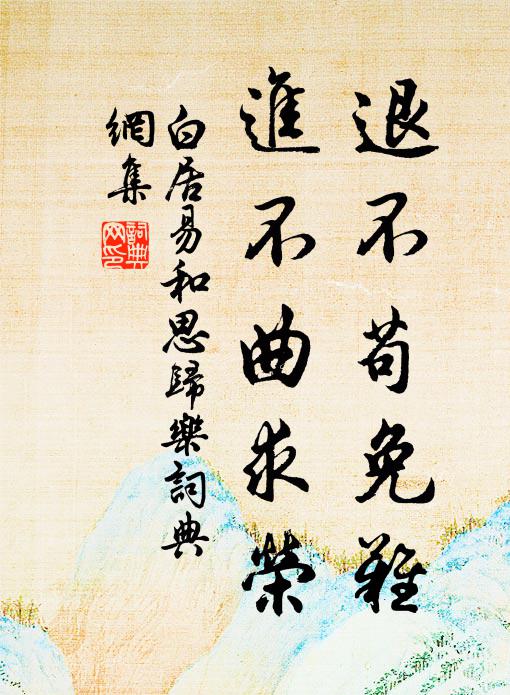 退不苟免難
進不曲求榮
白居易和思歸樂詞典
網集
詞典
网印